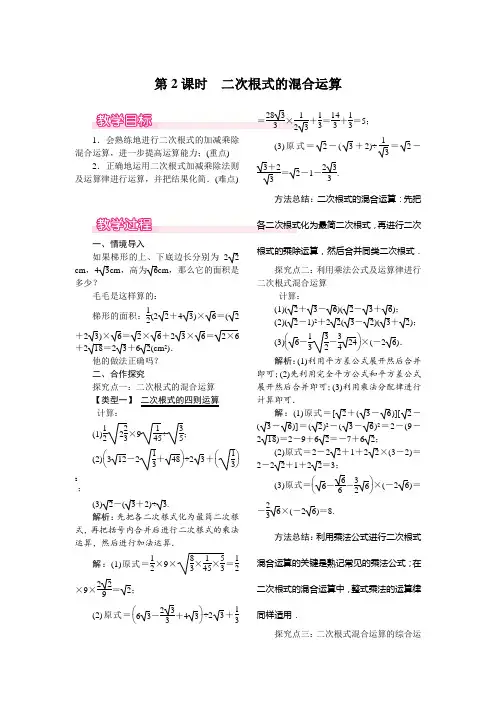 第2课时 二次根式的混合运算
教学目标
1．会熟练地进行二次根式的加减乘除
混合运算，进一步提高运算能力；(重点)
2．正确地运用二次根式加减乘除法则
及运算律进行运算，并把结果化简．(难点)
教学过程
一、情境导入
如果梯形的上、下底边长分别为 2√2
cm，4√3cm，高为√6cm，那么它的面积是
多少？
毛毛是这样算的：
梯形的面积：1/2(2√2+4√3)×√6=(√2
+2√3)×√6=√2×√6+2√3×√6=√(2×6)
+2√18=2√3+6√2(cm²)．
他的做法正确吗？
二、合作探究
探究点一：二次根式的混合运算
【类型一】 二次根式的四则运算
计算：
(1)1/2√(2 2/3)×9√(1/45)÷√(3/5)；
(2)(3√12-2√(1/3)+√48)÷2√3+(√(1/3))
²
；
(3)√2-(√3+2)÷√3.
解析：先把各二次根式化为最简二次根
式，再把括号内合并后进行二次根式的乘法
运算，然后进行加法运算．
解：(1)原式=1/2×9×√(8/3×1/45×5/3)=1/2
×9×2√2/9=√2；
(2)原式=(6√3-2√3/3+4√3)÷2√3+1/3
=28√3/3×1/(2√3)+1/3=14/3+1/3=5；
(3)原式=√2-(√3+2)÷1/√3=√2-
(√3+2)/√3=√2-1-2√3/3.
方法总结：二次根式的混合运算：先把
各二次根式化为最简二次根式，再进行二次
根式的乘除运算，然后合并同类二次根式．
探究点二：利用乘法公式及运算律进行
二次根式混合运算
计算：
(1)(√2+√3-√6)(√2-√3+√6)；
(2)(√2-1)²+2√2(√3-√2)(√3+√2)；
(3)(√6-1/3√(3/2)-3/4√24)×(-2√6)．
解析：(1)利用平方差公式展开然后合并
即可；(2)先利用完全平方公式和平方差公式
展开然后合并即可；(3)利用乘法分配律进行
计算即可．
解：(1)原式=[√2+(√3-√6)][√2-
(√3-√6)]=(√2)²-(√3-√6)²=2-(9-
2√18)=2-9+6√2=-7+6√2；
(2)原式=2-2√2+1+2√2×(3-2)=
2-2√2+1+2√2=3；
(3)原式=(√6-√6/6-3/2√6)×(-2√6)=
-2/3√6×(-2√6)=8.
方法总结：利用乘法公式进行二次根式
混合运算的关键是熟记常见的乘法公式；在
二次根式的混合运算中，整式乘法的运算律
同样适用．
探究点三：二次根式混合运算的综合运